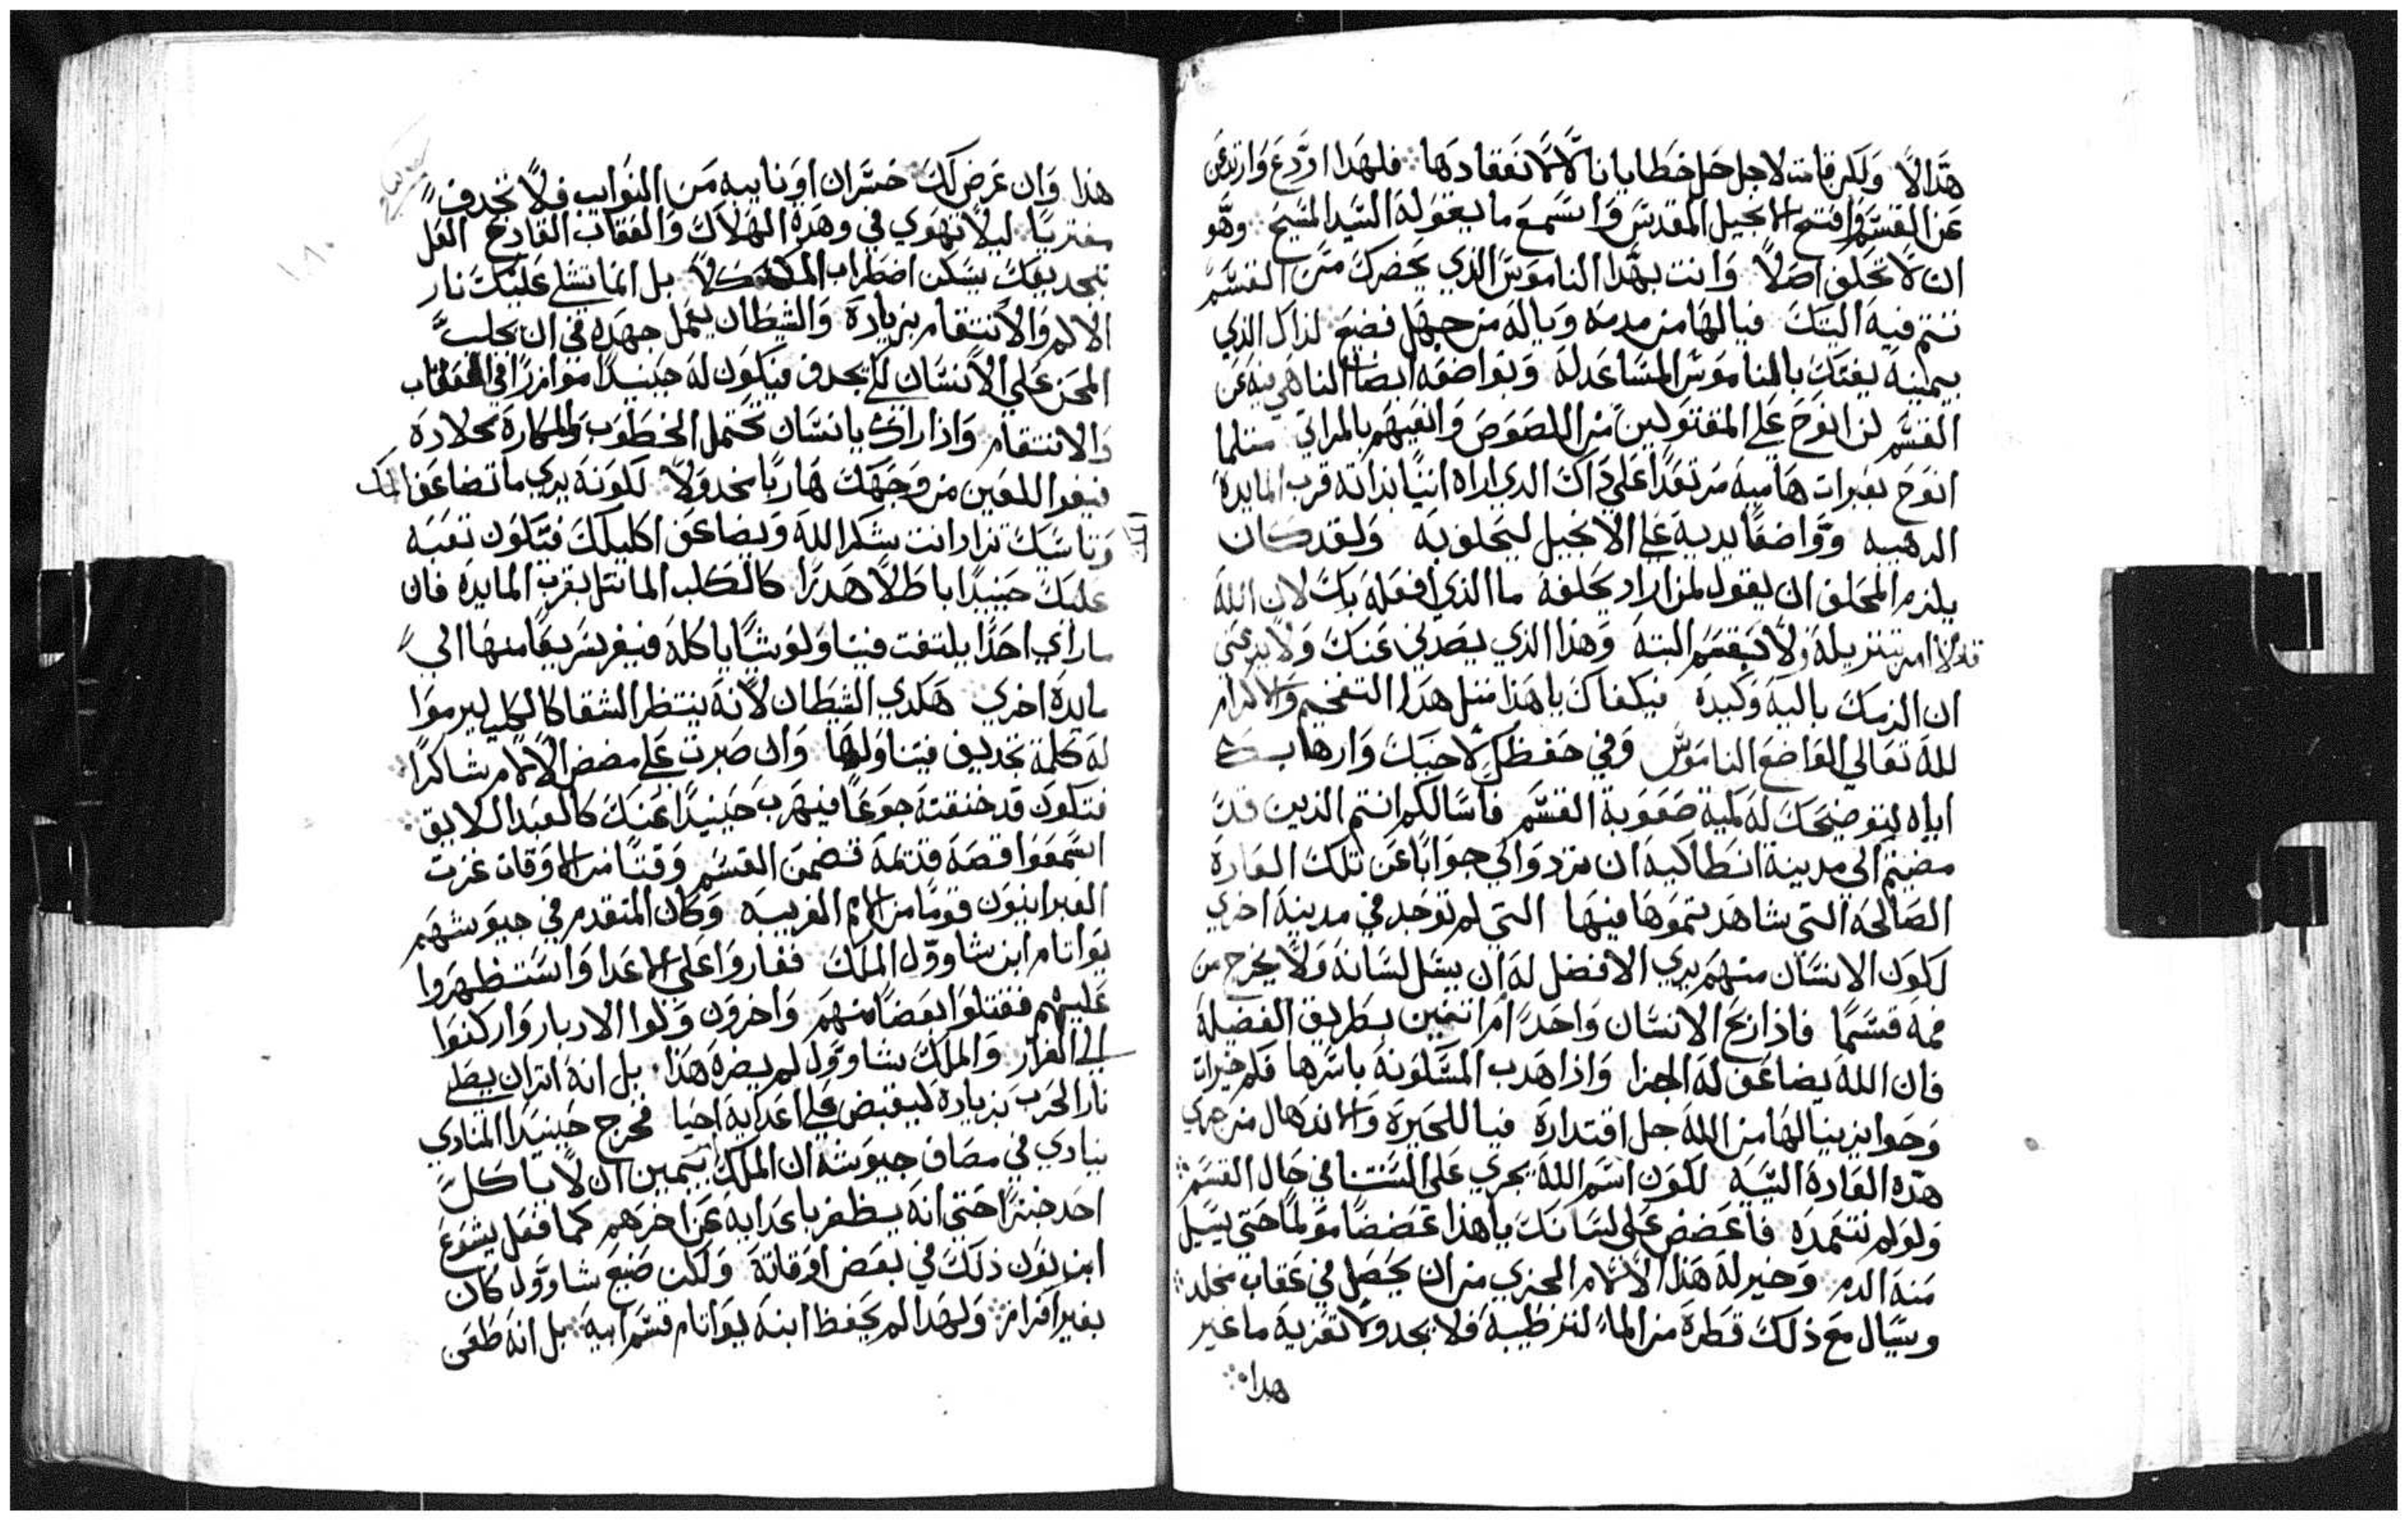 هذا الا ولكن قامت لاجل حل خطايانا لا لانفقادها فلهذا اردع وارتدع
عن القسم وافتح الانجيل المقدس واستمع ما يقوله السيد المسيح وهو
ان لا تحلف اصلا وانت بهذا الناموس الذي يحضرك من القسم
فيالها من مدمه وياله من جهل فضيع لذاك الذي
بيمينه بالناموس المساعد له وبواضعه ايضا الناهي فيه عن
القسم لن انوح علي المقتولين من اللصوص وانعيهم بالمراثي مثلما
انوح بعبرات هاميه مرتعدا علي ذاك الذي اراه اتيا بذاته قرب المايدة
الدهبيه وواضعا يديه علي الانجيل ليحلف به ولقد كان
يلزم المحلف ان يقول لمن اراد يحلفه ما الذي افعله بك لان الله
قد امر بتنزيله ولا تقسم البته وهذا الذي يصدني عنك ولا يدعني
ان الزمك بالية وكيدة فيكفاك يا هذا مثل هذا التفخيم والاكرام
لله تعالي الواضع الناموس وفي حفظك لاخيك وارهابك
اياه بتوضيحك له كمية صعوبة القسم فاسالكم انتم الذين قد
مضيتم الي مدينة انطاكيه ان تردوا لي جوابا عن تلك العادة
الصالحه التي شاهدتموها فيها التي لم توجد في مدينة اخري
لكون الانسان منهم يري الافضل له ان يسل لسانه ولا يخرج من
فمه قسما فاذا ربح الانسان واحدا ام اثنين بطريق الفضيلة
فان الله يضاعف له الجزا واذا هدب المسكونه باسرها فكم خيرات
وجوايز ينالها من الله جل اقتداره فيا للحيرة والاندهال من جري
هذه العادة السيه لكون اسم الله يجري علي السنتنا في حال القسم
ولو لم نتعمده فاعضض علي لسانك يا هذا عضضا مولما حتي يسيل
منه الدم وخير له هذا الالم الجزي من ان يحصل في عقاب مخلد
ويسال مع ذلك قطرة من الماء لترطيبه فلا يجد ولا تعزيه ما غير
هدا
هذا وان عرض لك خسران او نايبه من النوايب فلا تجدف
مفتريا ليلا تهوي في وهدة الهلاك والعقاب القادح العل
بتجديفك يسكن اضطراب المك كلا بل انما تشلي عليك نار
الالم والانتقام بزيادة والشيطان يعمل جهده في ان يجلب
المحن علي الانسان لكي يجدف فيكون له حينيدا موازرا في العقاب
والانتقام واذا راك يا انسان تحتمل الخطوب والمكارة بجلادة
فيغوا اللعين من وجهك هاربا مخدولا لكونه يري ما تضاعف المك
وتاسيك تزاد انت بشكر الله ويضاعف اكليلك فيكون تعبه
عليك حينيدا باطلا هدرا كالكلب الماتل بقرب المايدة فان
ما راي احدا يلتفت فيناوله شيا ياكله فيفر سريعا منها الي
مايدة اخري هكدي الشيطان لانه ينتظر الشقا كالكلب ليرموا
له كلمة تجديف فيتناولها وان صبرت علي مضض الالام شاكرا
فتكون قد خنقته جوعا فيهرب حينيدا عنك كالعبد الابق
اسمعوا قصه قديمة تضمن القسم وقتا من الاوقات غزت
العبرانيون قوما من الامم الغريبه وكان المتقدم في جيوشهم
يوانام ابن شاوول الملك فغاروا علي الاعدا واستظهروا
عليهم فقتلوا بعضا منهم واخرون ولوا الادبار واركنوا
الي الفرار والملك شاوول لم يضره هذا بل انه اتران يصلي
نار الحرب بزيادة ليقبض علي اعدايه احيا فخرج حينيدا المنادي
ينادي في مصاف جيوشه ان الملك بيمين ان لا ياكل
احد خبزا حتي انه يظفر باعدايه عن اخرهم كما فعل يشوع
ابن نون ذلك في بعض اوقاته ولكن صنيع شاوول كان
بغير افراز ولهدا لم يحفظ ابنه يواناتام قسم ابيه بل انه طغي